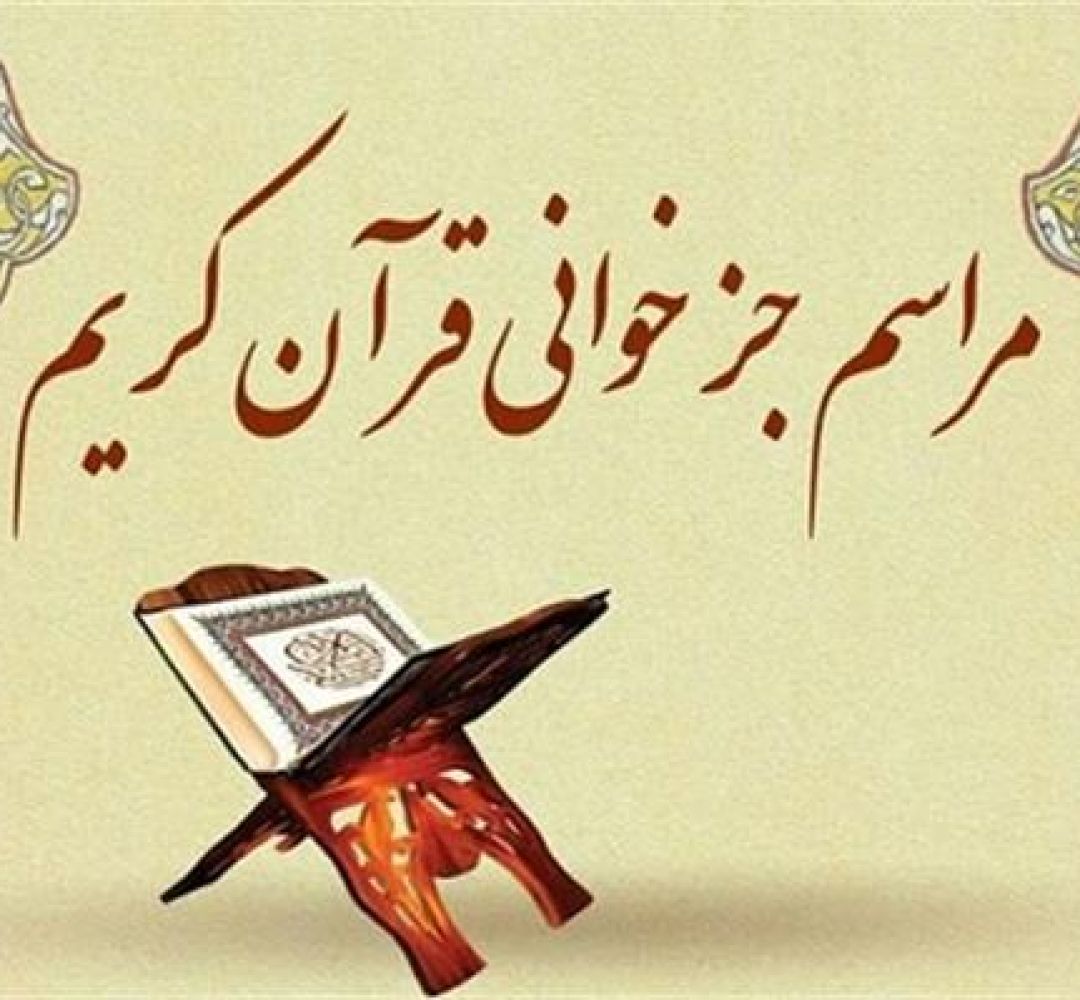 مراسم جز خوانی قرآن کریم